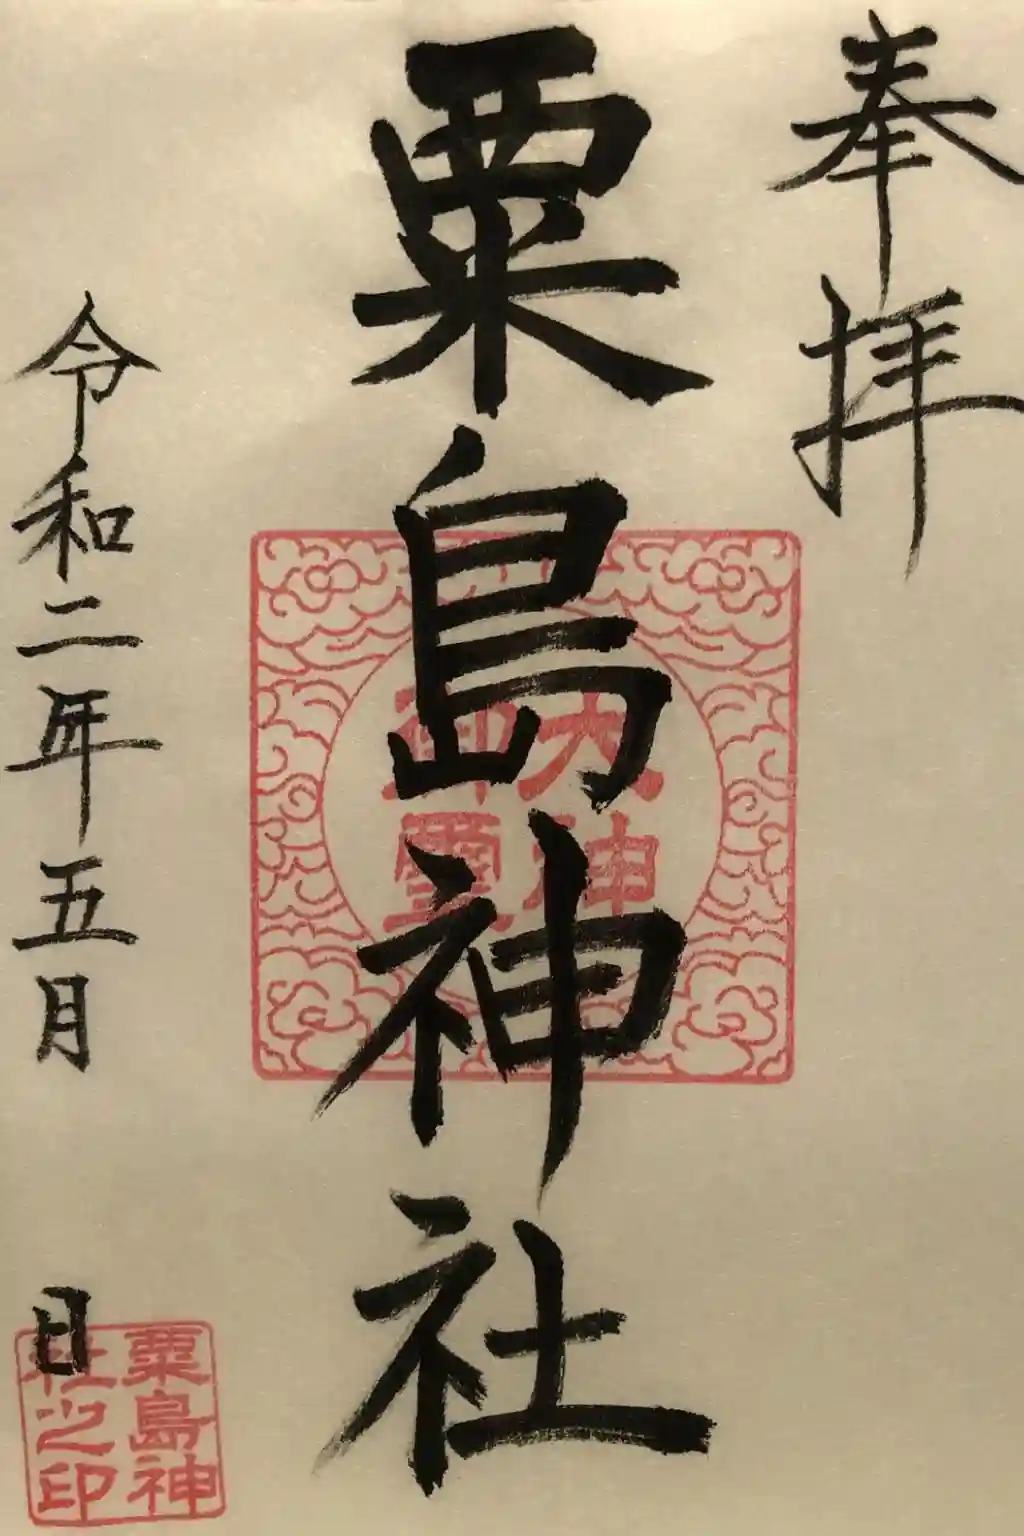 奉拝
粟島神社
大神
御霊
令和二年五月 日
粟島神
社之印